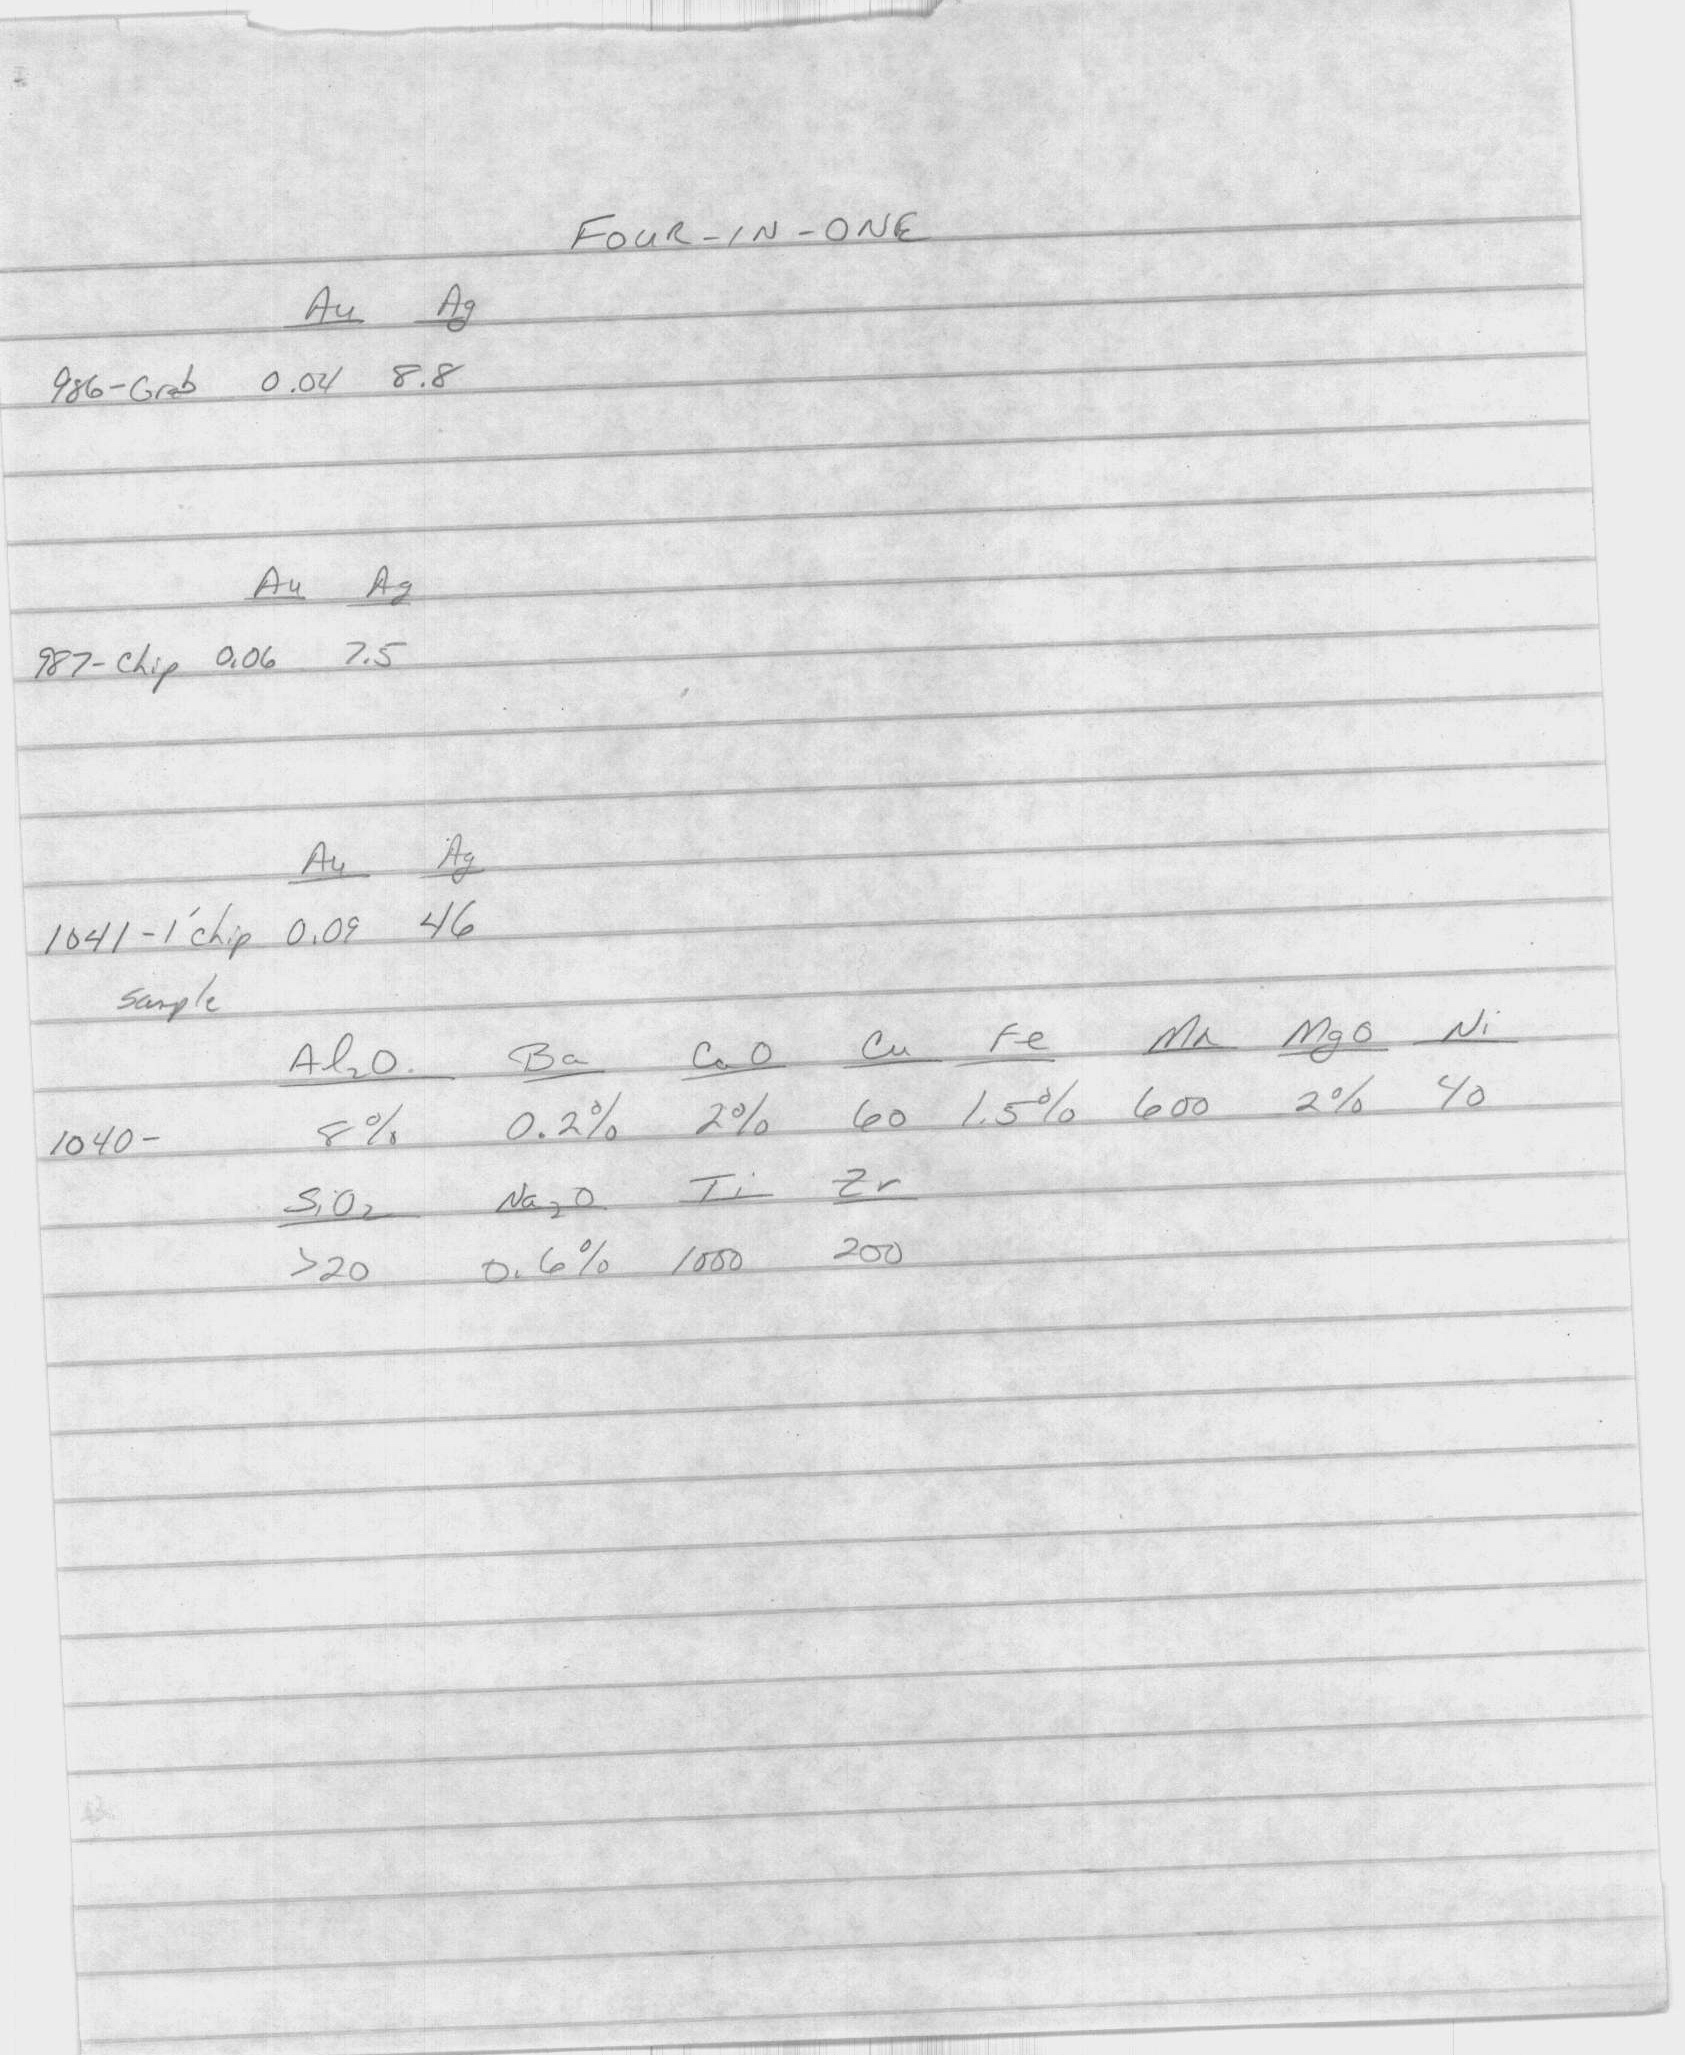 FOUR-IN-ONE
Au Ag
986-Grab 0.04 8.8
Au Ag
987-Chip 0.06 7.5
Au Ag
1041-1' chip 0.09 46
sample
Al₂O. Ba CaO Cu Fe Mn MgO Ni
1040- 8% 0.2% 2% 60 1.5% 600 2% 40
SiO₂ Na₂O Ti Zr
>20 0.6% 1000 200